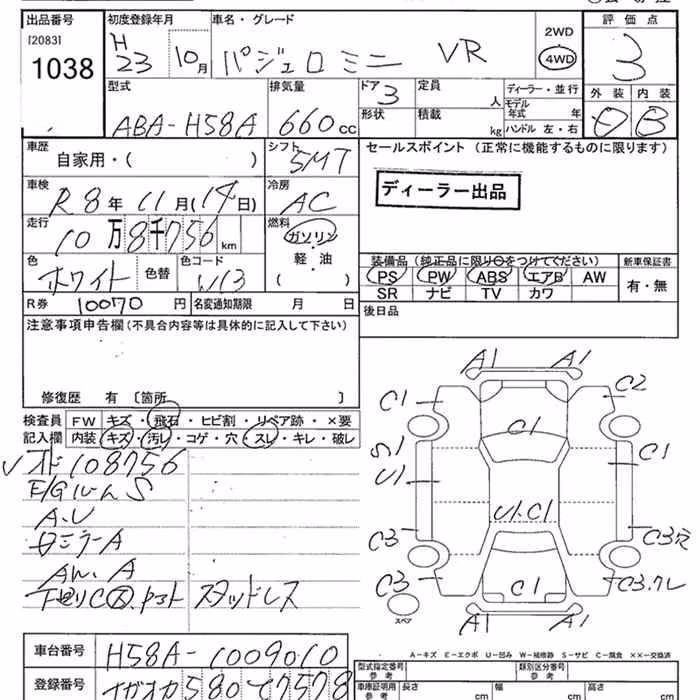 出品番号 初度登録年月 車名・グレード 評価点
[2083] H 2WD
1038 23 10月 パジェロミニ VR 4WD 3
型式 排気量 ドア 3 定員 人 ディーラー・並行 外装 内装
ABA-H58A 660cc 形状 積載 kg モデル年式 年 B
ハンドル 左・右
車歴 シフト セールスポイント (正常に機能するものに限ります)
自家用・( ) 5MT
ディーラー出品
車検 冷房
R8年 11月(14日) AC
走行 燃料
10万8千756km ガソリン
軽・油
( )
色 色コード 装備品 (純正品に限り○をつけてください) 新車保証書
ホワイト 色替 W13 PS PW ABS エアB AW 有・無
SR ナビ TV カワ
R券 10070円 名変通知期限 月 日 後日品
注意事項申告欄 (不具合内容等は具体的に記入して下さい)
修復歴 有 〔箇所 〕
検査員 FW キズ・飛石・ヒビ割・リペア跡・×要
記入欄 内装 キズ・汚レ・コゲ・穴・スレ・キレ・破レ
A1 A1
C1 C2
C1
S1 C1
U1
U1.C1
C3 C3穴
C3 C3.クレ
C1
A1 A1
スペア
108756
E/Gルーム S
A.U
ミラーA
A
スタッドレス
A-キズ E-エクボ U-凹み W-補修跡 S-サビ C-腐食 ××-交換済
車台番号 H58A-1009010
型式指定番号 参考 類別区分番号 参考
登録番号 580 て7578
車庫証明用 参考 長さ cm 幅 cm 高さ cm